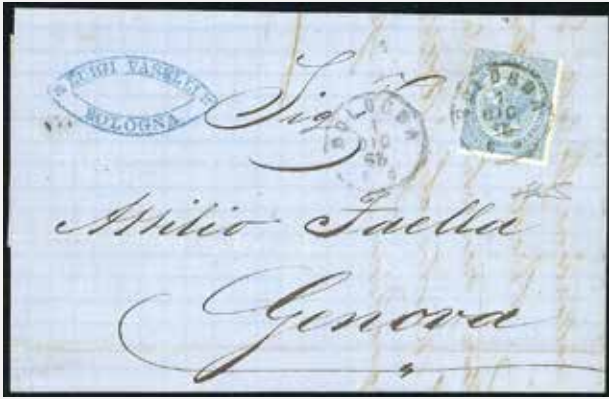 LUIGI VASELLI
BOLOGNA
Sigr
BOLOGNA
1
DIC
65
BOLOGNA
1
DIC
65
Attilio Faella
Genova